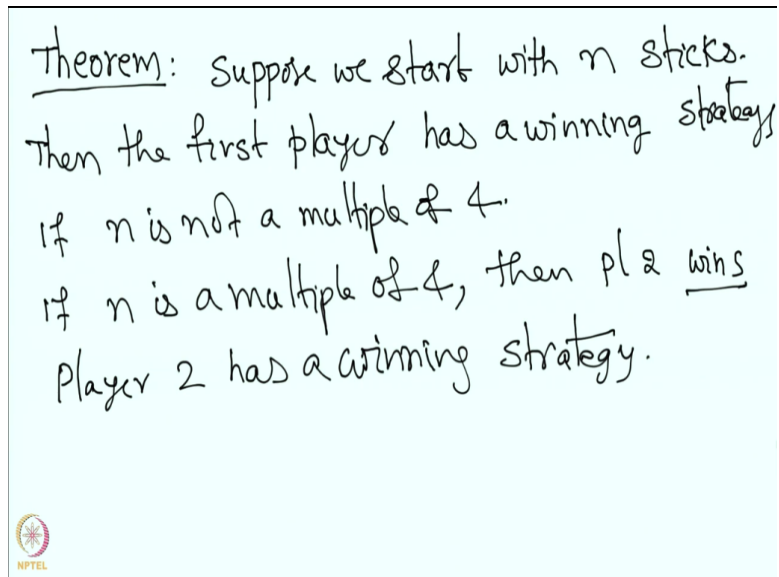 Theorem: Suppose we start with n sticks.
Then the first player has a winning strategy
if n is not a multiple of 4.
if n is a multiple of 4, then pl 2 wins
Player 2 has a winning strategy.
NPTEL